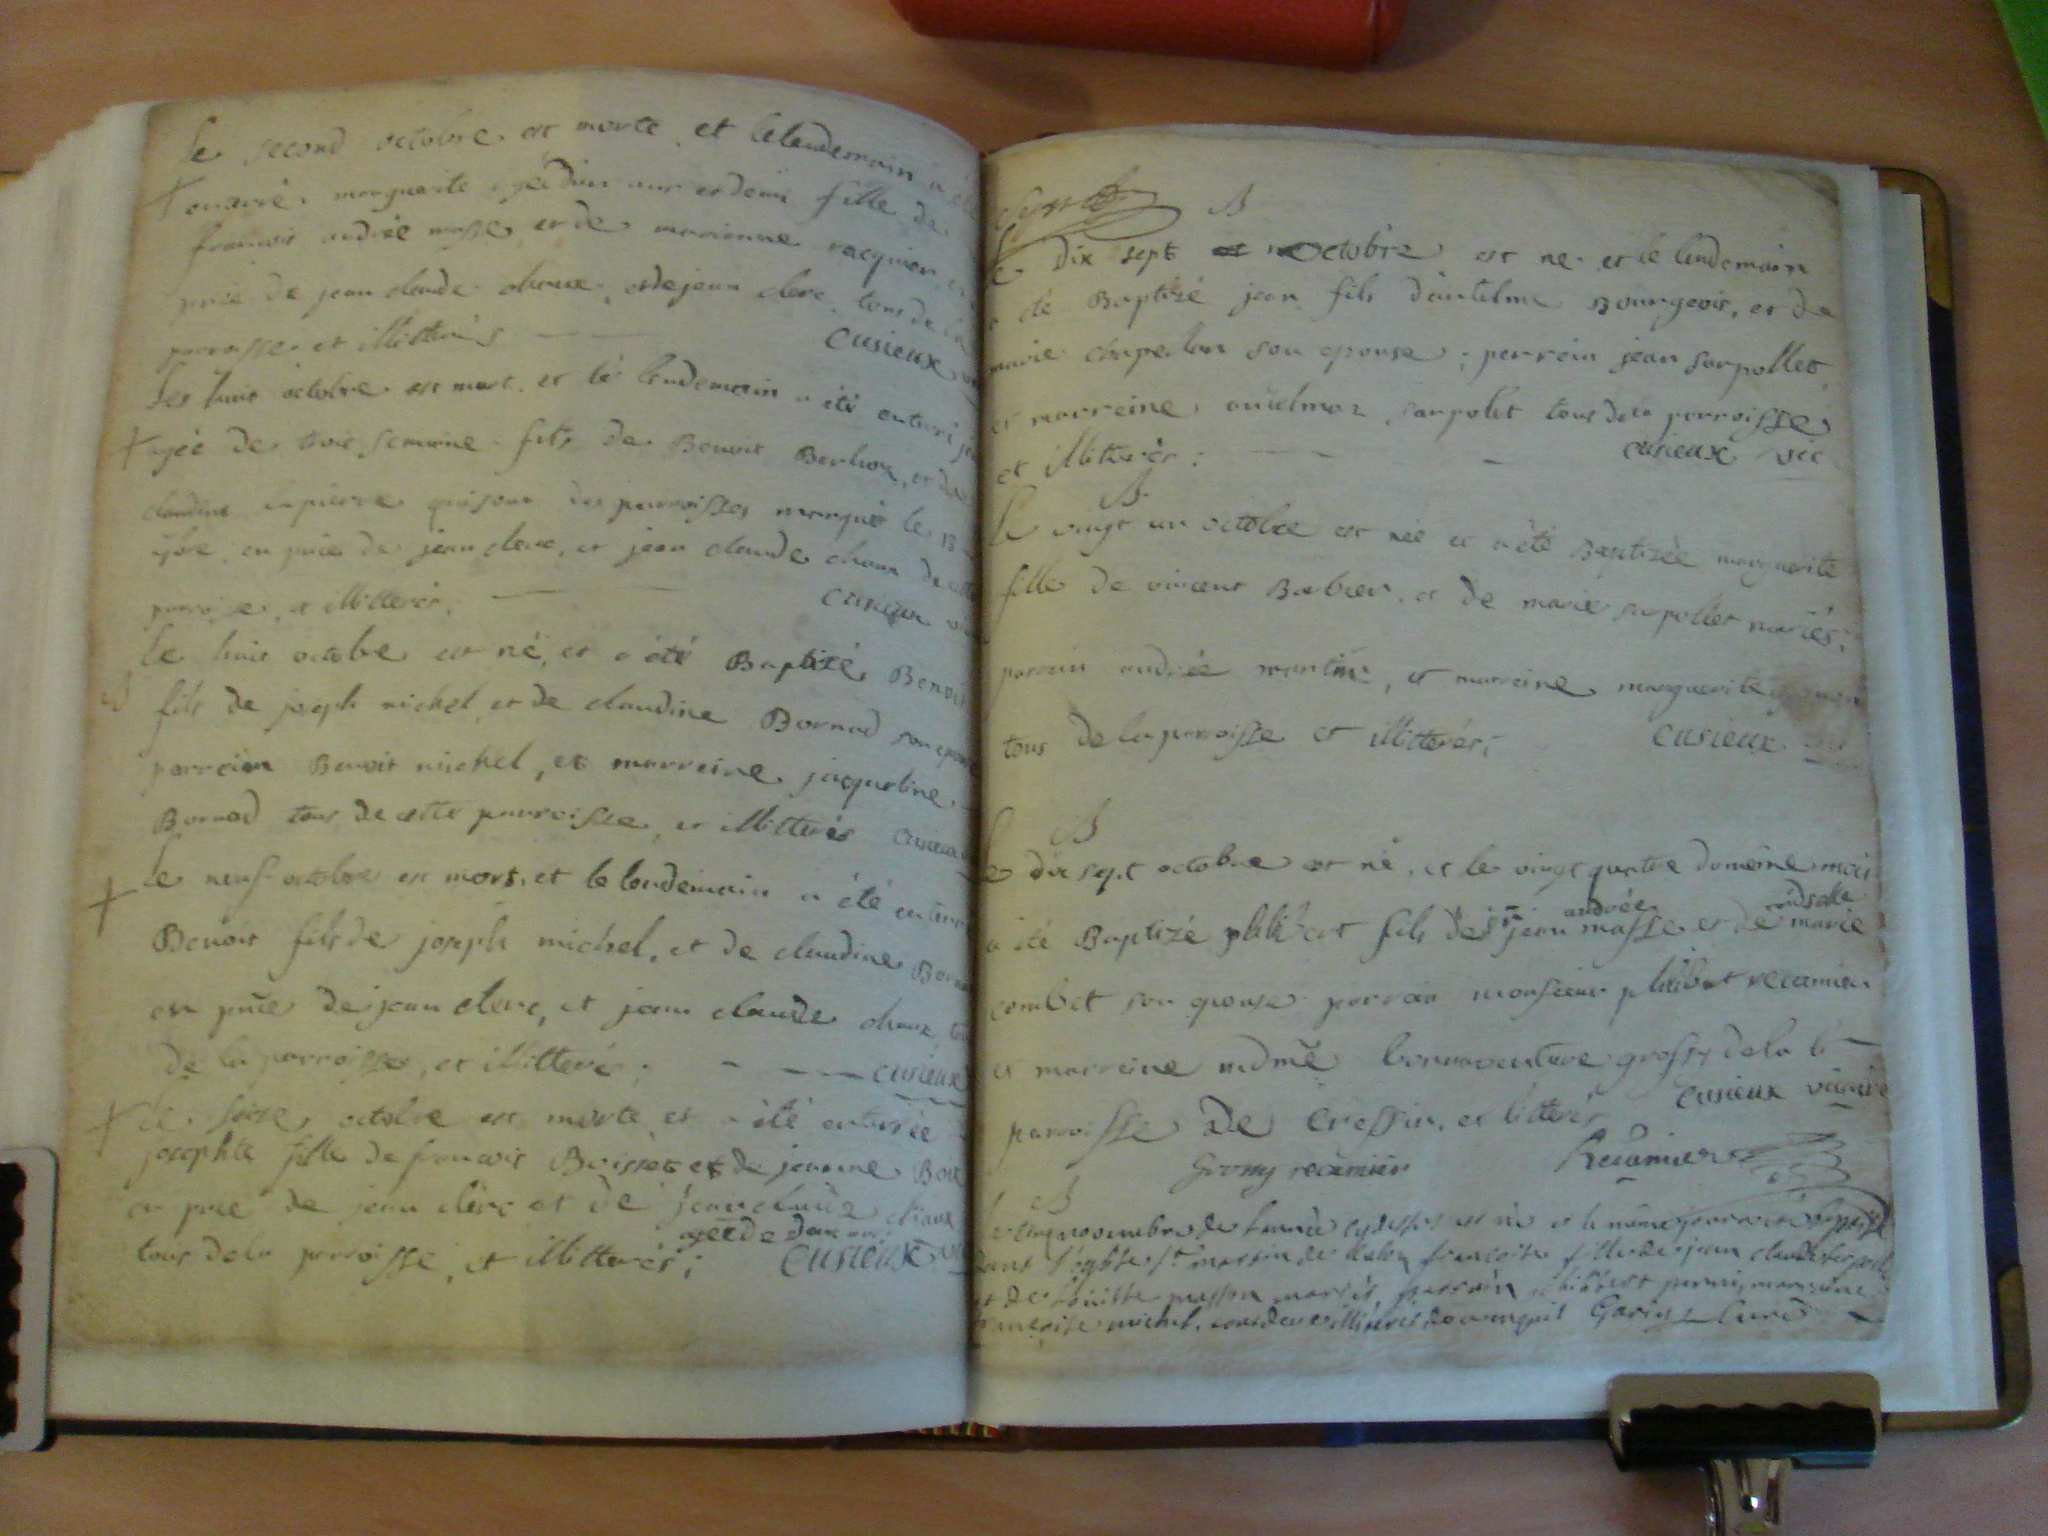 Le second octobre est morte et le lendemain a été
enterré marguerite agée d'un ans et demi fille de
francois andrée masse, et de marianne racquier, en
pnce de jean claude chaux, et de jean clerc, tous de la
parroisse et illitterés cusieux
Les huit octobre est mort, et le lendemain a été enterré
agée de trois semaine fils de Benoit Berlioz, et de
claudine lapierre qui sont des parroisses marqué le
en pnce de jean clerc, et jean claude chaux de cette
parroisse et illitterés. cusieux
Le huit octobre est né, et a été Baptizé Benoit
fils de joseph michel, et de claudine Bornad son epouse
parrein Benoit michel, et marreine jacqueline
Bornad tous de cette parroisse, et illitterés cusieux
Le neuf octobre est mort, et le lendemain a été enterré
Benoit fils de joseph michel, et de claudine Bornad
en pnce de jean clerc, et jean claude chaux, tous
de la parroisse, et illitterés; cusieux
Le seize octobre est morte et a été enterrée
josephte fille de francois Boisset et de jeanne
en pnce de jean clerc et de jean claude chaux
agée de deux ans
tous de la parroisse, et illitterés; cusieux
B
Le dix sept octobre est ne et le lendemain
a été Baptizé jean fils d'antelme Bourgeois, et de
marie chapellan son epouse; perrein jean sarpollet
et marreine antelmaz sarpolet tous de la parroisse
et illitterés: cusieux vic
B.
Le vingt un octobre est née et a été Baptizée marguerite
fille de vincent Barbier, et de marie sarpollet mariés;
parrain andrée martin, et marreine marguerite
tous de la parroisse et illitterés; cusieux
B
Le dix sept octobre est né, et le vingt quatre du meme mois
andrée
a été Baptizé philibert fils de jean masse et de marie
combet son epouse parrain monsieur philibert recamier
et marreine mdme bonnaventure grossy de la
parroisse de Cressin, et litterés cusieux vicaire
Grossy recamier Recamier
B
Le cinq novembre de l'année cydessus est née et le même jour a été baptisée
dans l'eglise st martin de francoise fille de jean claude
et de mariés, parrain philibert marreine
francoise michel, tous deux illiterés de ce enquis Garin curé